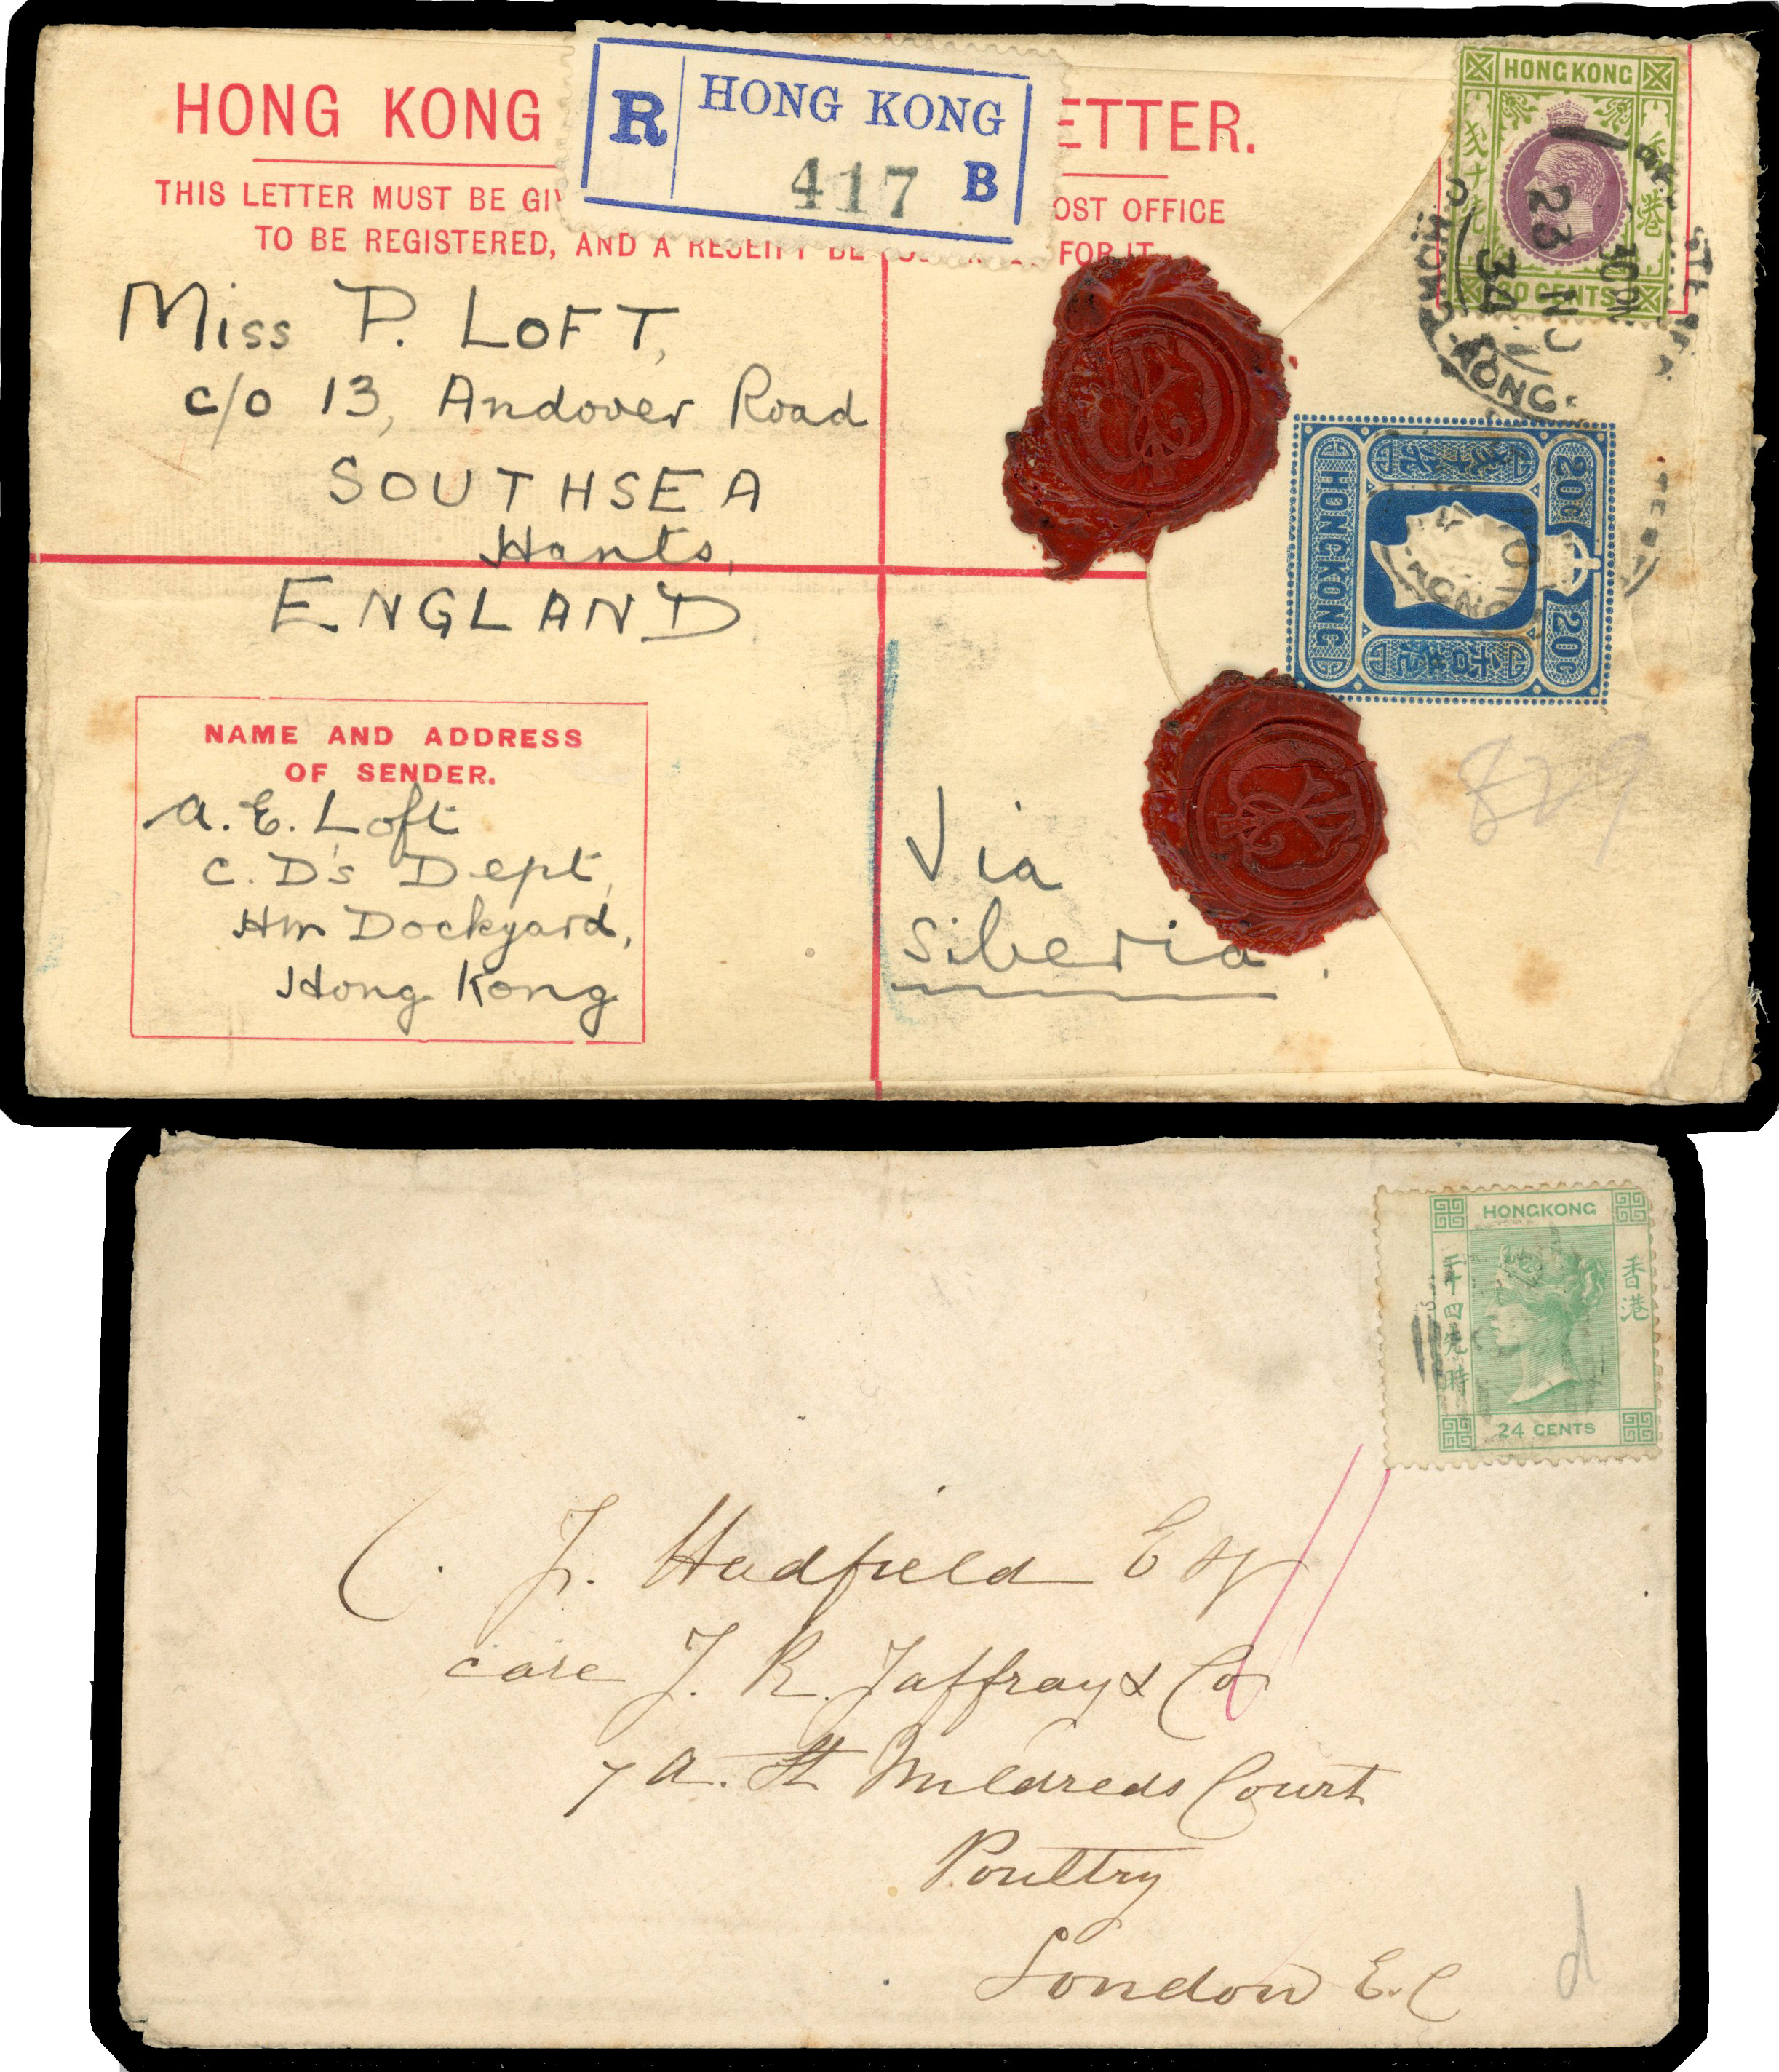 HONG KONG ETTER.
R HONG KONG
417 B
THIS LETTER MUST BE GI OST OFFICE
TO BE REGISTERED, AND A RECEIPT BE FOR IT
Miss P. LOFT,
c/o 13, Andover Road
SOUTHSEA
Hants,
ENGLAND
NAME AND ADDRESS
OF SENDER.
A. E. Loft
C. D's Dept,
HM Dockyard,
Hong Kong
Via
Siberia.
HONG KONG
香港
20 CENTS
23 JU
34
HONG KONG
20C
20C
829
HONGKONG
香港
二十四先時
24 CENTS
C. J. Hadfield Esq
care J. R. Jaffray & Co
7A. St Mildreds Court
Poultry
London E.C
d